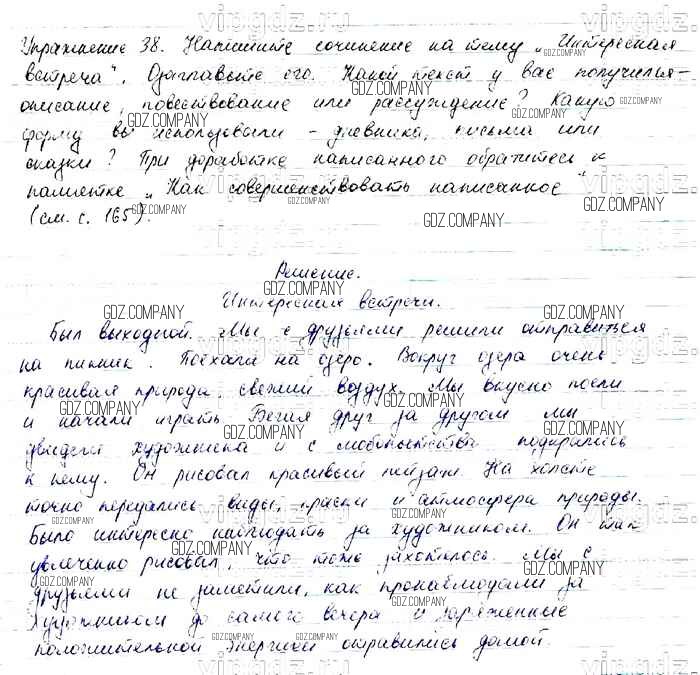 Упражнение 38. Напишите сочинение на тему „Интересная
встреча". Озаглавьте его. Какой текст у вас получился –
описание, повествование или рассуждение? Какую
форму вы использовали – дневника, письма или
сказки? При доработке написанного обратитесь к
памятке „Как совершенствовать написанное"
(см. с. 165).
Решение.
Интересная встреча.
Был выходной. Мы с друзьями решили отправиться
на пикник. Поехали на озеро. Вокруг озера очень
красивая природа, свежий воздух. Мы вкусно поели
и начали играть. Бегая друг за другом мы
увидели художника и с любопытства подкрались
к нему. Он рисовал красивый пейзаж. На холсте
точно передались виды, краски и атмосфера природы.
Было интересно наблюдать за художником. Он так
увлеченно рисовал, что тоже захотелось. Мы с
друзьями не заметили, как пронаблюдали за
художником до самого вечера и заряженные
положительной энергией отправились домой.
vipgdz.ru
GDZ.COMPANY